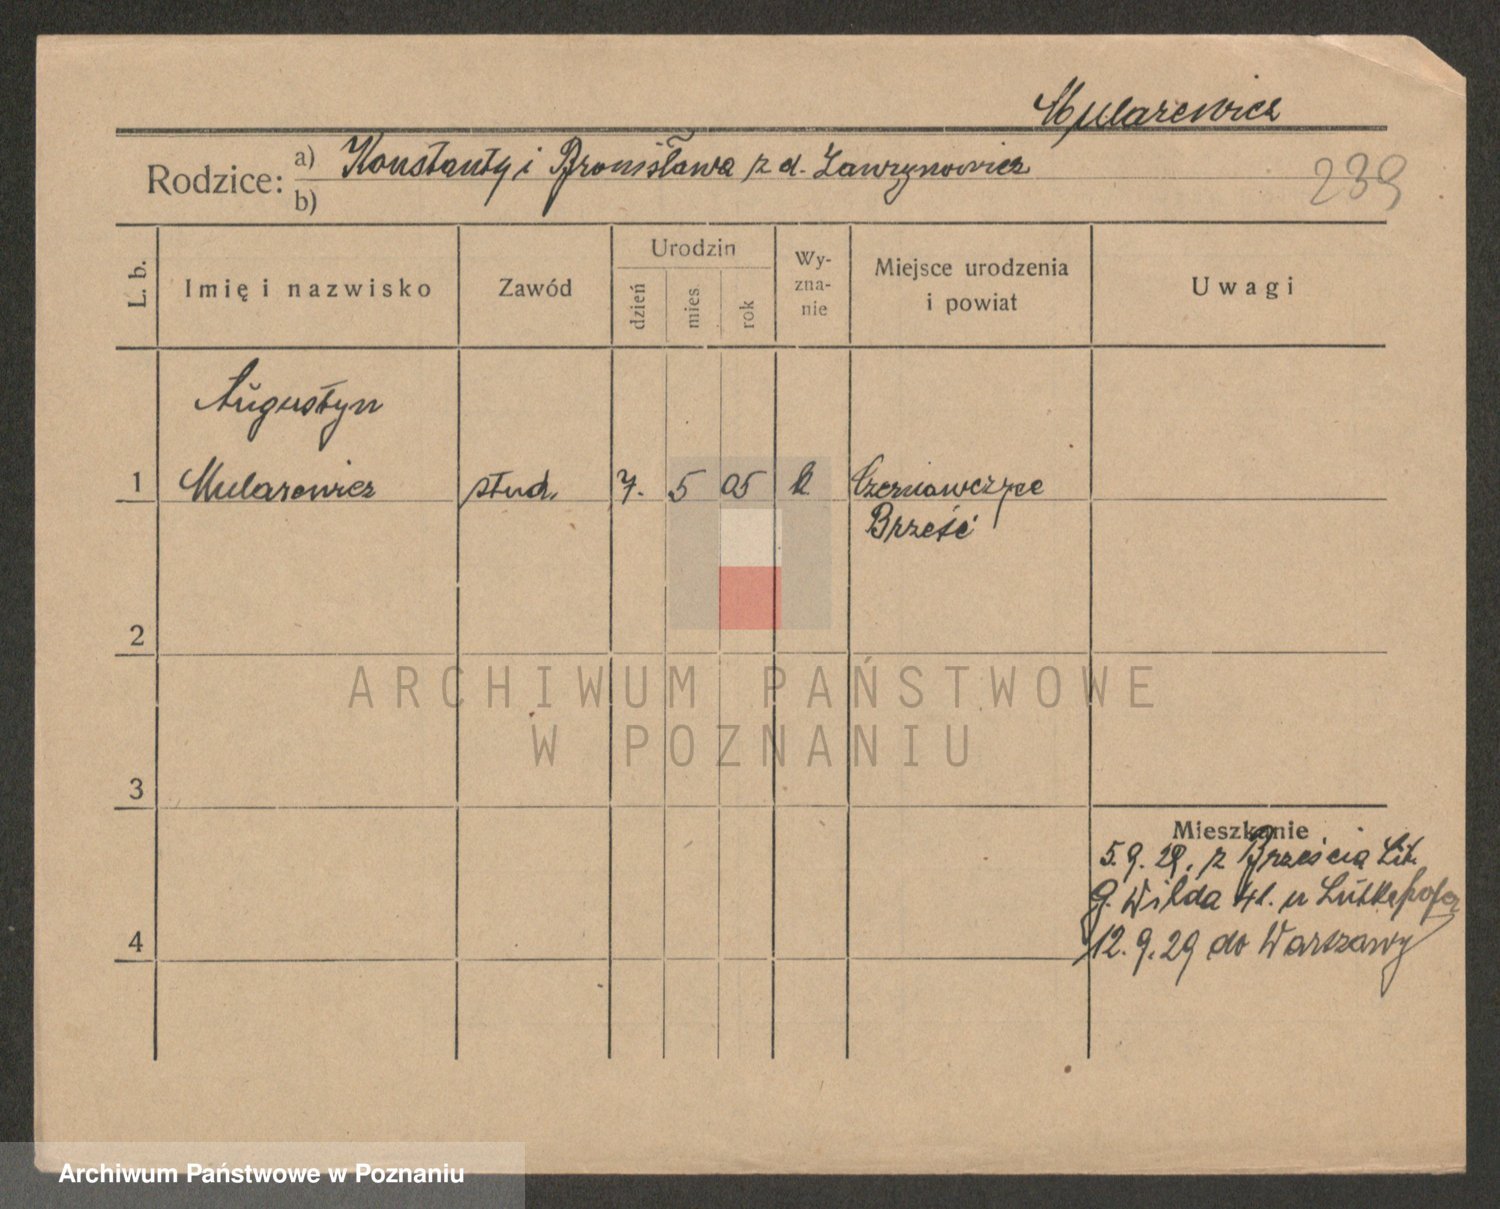 Mularewicz
Rodzice: a) Konstanty i Bronisława z d. Ławrynowicz
b)
239
L. b. Imię i nazwisko Zawód Urodzin dzień mies. rok Wyznanie Miejsce urodzenia i powiat Uwagi
Augustyn
1 Mularewicz stud. 7. 5 05 Czerniawczyce
Brześć
2
ARCHIWUM PAŃSTWOWE
W POZNANIU
3
Mieszkanie
5.9.29. z Brześcia Lit.
G. Wilda 41. u
4 12.9.29 do Warszawy
Archiwum Państwowe w Poznaniu